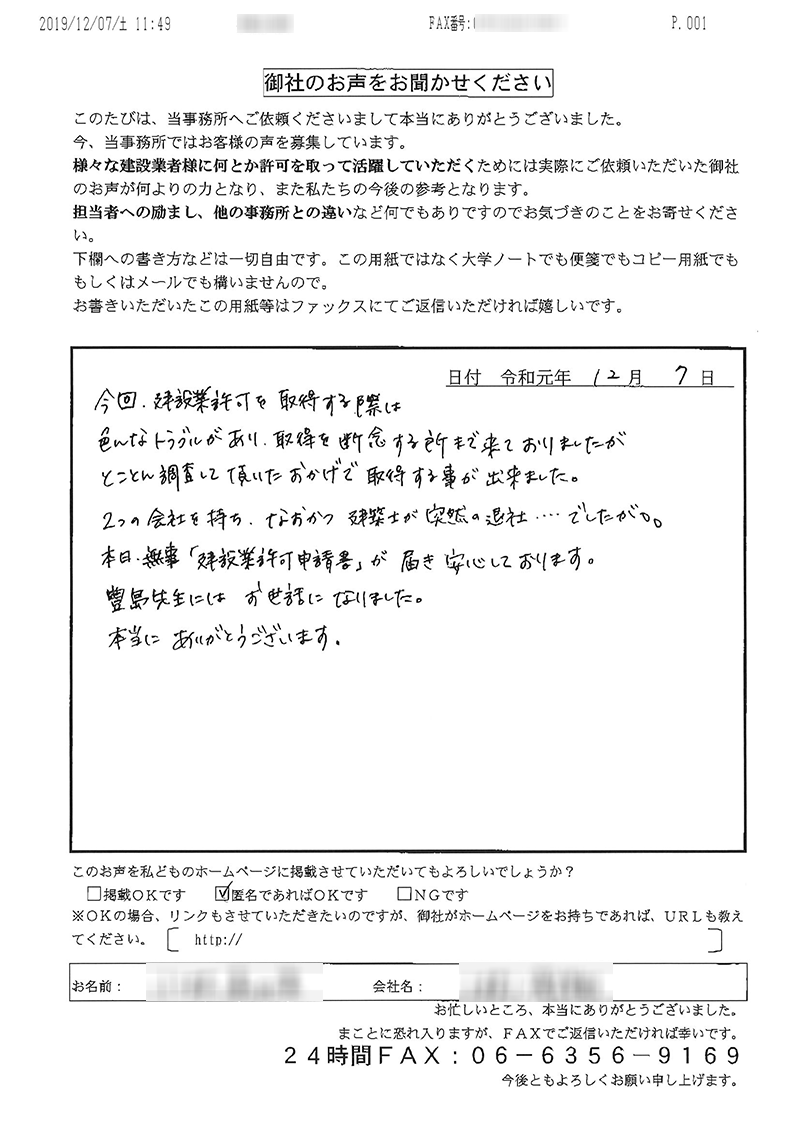 2019/12/07/土 11:49 FAX番号: P.001
御社のお声をお聞かせください
このたびは、当事務所へご依頼くださいまして本当にありがとうございました。
今、当事務所ではお客様の声を募集しています。
様々な建設業者様に何とか許可を取って活躍していただくためには実際にご依頼いただいた御社
のお声が何よりの力となり、また私たちの今後の参考となります。
担当者への励まし、他の事務所との違いなど何でもありですのでお気づきのことをお寄せくださ
い。
下欄への書き方などは一切自由です。この用紙ではなく大学ノートでも便箋でもコピー用紙でも
もしくはメールでも構いませんので。
お書きいただいたこの用紙等はファックスにてご返信いただければ嬉しいです。
日付 令和元年 12月 7日
今回、建設業許可を取得する際は
色んなトラブルがあり、取得を断念する所まで来ておりましたが
とことん調査して頂いたおかげで取得する事が出来ました。
2つの会社を持ち、なおかつ建築士が突然の退社‥‥でしたが。。
本日、無事「建設業許可申請書」が届き安心しております。
豊島先生にはお世話になりました。
本当にありがとうございます。
このお声を私どものホームページに掲載させていただいてもよろしいでしょうか？
□掲載OKです ☑匿名であればOKです □NGです
※OKの場合、リンクもさせていただきたいのですが、御社がホームページをお持ちであれば、URLも教え
てください。 [ http:// ]
お名前： 会社名：
お忙しいところ、本当にありがとうございました。
まことに恐れ入りますが、FAXでご返信いただければ幸いです。
24時間FAX：06-6356-9169
今後ともよろしくお願い申し上げます。